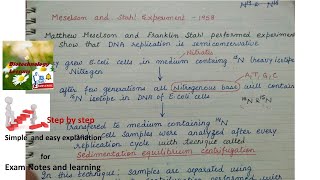 N14 & N15
Meselson and Stahl Experiment - 1958
Matthew Meselson and Franklin Stahl performed experiment
show that DNA replication is semiconservative
Nitrates
they grew E.coli cells in medium containing 15N (heavy isotope
Nitrogen
A,T,G,C
after few generations all Nitrogenous base will contain
15N isotope in DNA of E.coli cells
14N & 15N
transferred to medium containing 14N
cell samples were analyzed after every
replication cycle with technique called
Sedimentation equilibrium centrifugation
In this technique; samples are separated using
performed with
Biotechnology
Step by step
Simple and easy explanation
for
Exam Notes and learning